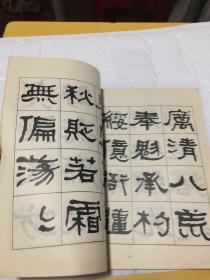 厲清八荒
奉魁承杓
綏億衙彊
秋貶若霜
無偏蕩〻